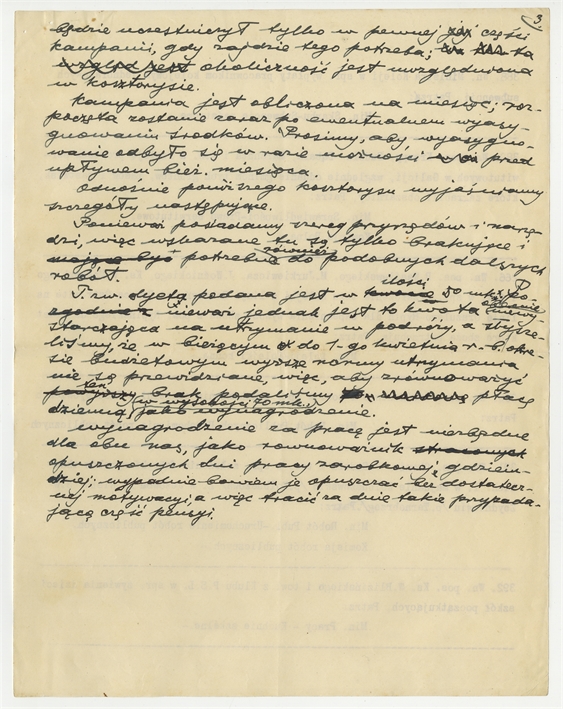 3
będzie uczestniczył tylko w pewnej jej części
kampanii, gdy zajdzie tego potrzeba; ta
wzgląd jest okoliczność jest uwzględniona
w kosztorysie.
Kampania jest obliczona na miesiąc; roz-
poczęta zostanie zaraz po ewentualnem wyasy-
gnowaniu środków. Prosimy, aby wyasygno-
wanie odbyło się w razie możności przed
upływem bież. miesiąca.
Odnośnie poniższego kosztorysu wyjaśniamy
szczegóły następujące.
Ponieważ posiadamy szereg przyrządów i narzę-
dzi, więc wskazane tu są tylko brakujące i
mające być potrzebne również do podobnych dalszych
robót.
T. zw. dyeta podana jest w kwocie ilości 50 mk. Po-
nieważ jednak jest to kwota
starczająca na utrzymanie w podróży, a słysze-
liśmy, że w bieżącym do 1-go kwietnia r. b. okre-
sie budżetowym wyższe normy utrzymania
nie są przewidziane, więc, aby zrównoważyć
powyższy ten brak podaliśmy płacę
dzienną (w wysokości 70 mk.) jako wynagrodzenie.
Wynagrodzenie za pracę jest niezbędne
dla obu nas, jako równoważnik straconych
opuszczonych dni pracy zarobkowej gdzie in-
dziej; wypadnie bowiem je opuszczać bez dostatecz-
nej motywacji, a więc tracić za dnie takie przypada-
jącą część pensyi